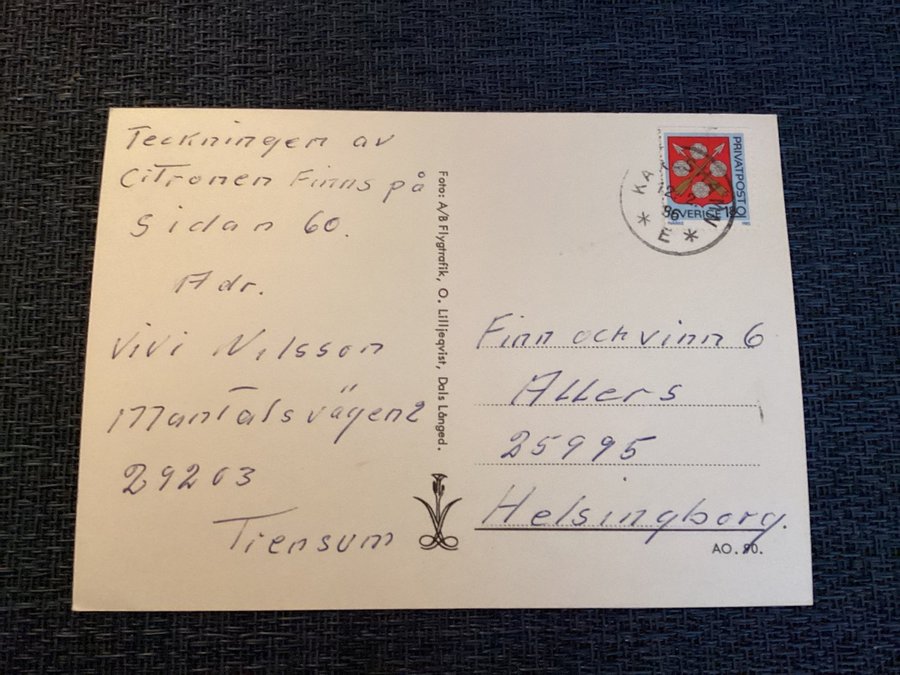 Teckningen av
Citronen Finns på
Sidan 60.
Adr.
Vivi Nilsson
Mantalsvägen 2
29203
Tiensum
Foto: A/B Flygtrafik, O. Lilljeqvist, Dals Långed.
PRIVATPOST
SVERIGE 180
86
* E *
Finn och vinn 6
Allers
25995
Helsingborg.
AO. 90.